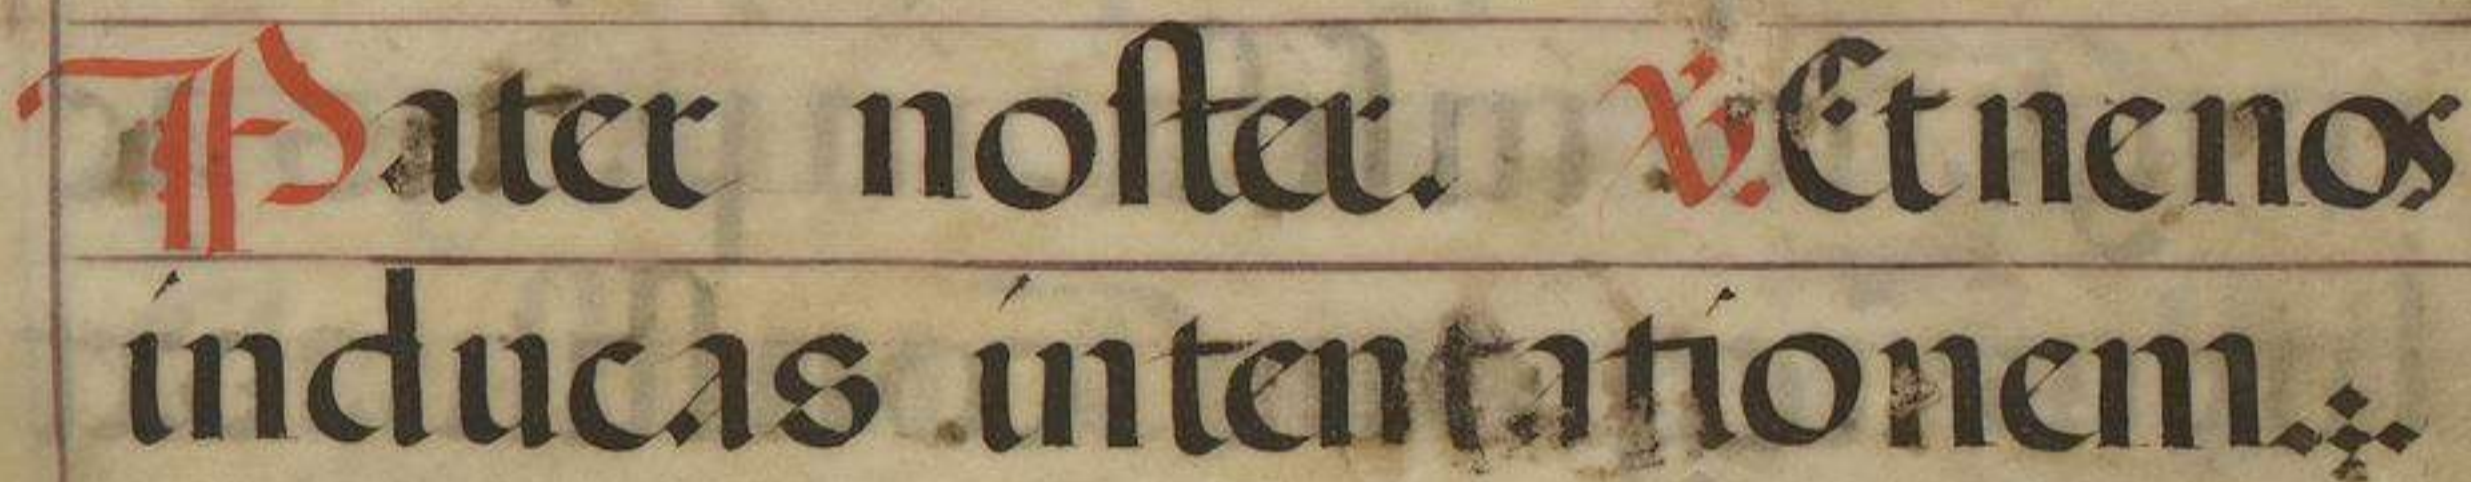 Pater noster. ℣. Et ne nos
inducas intentationem.